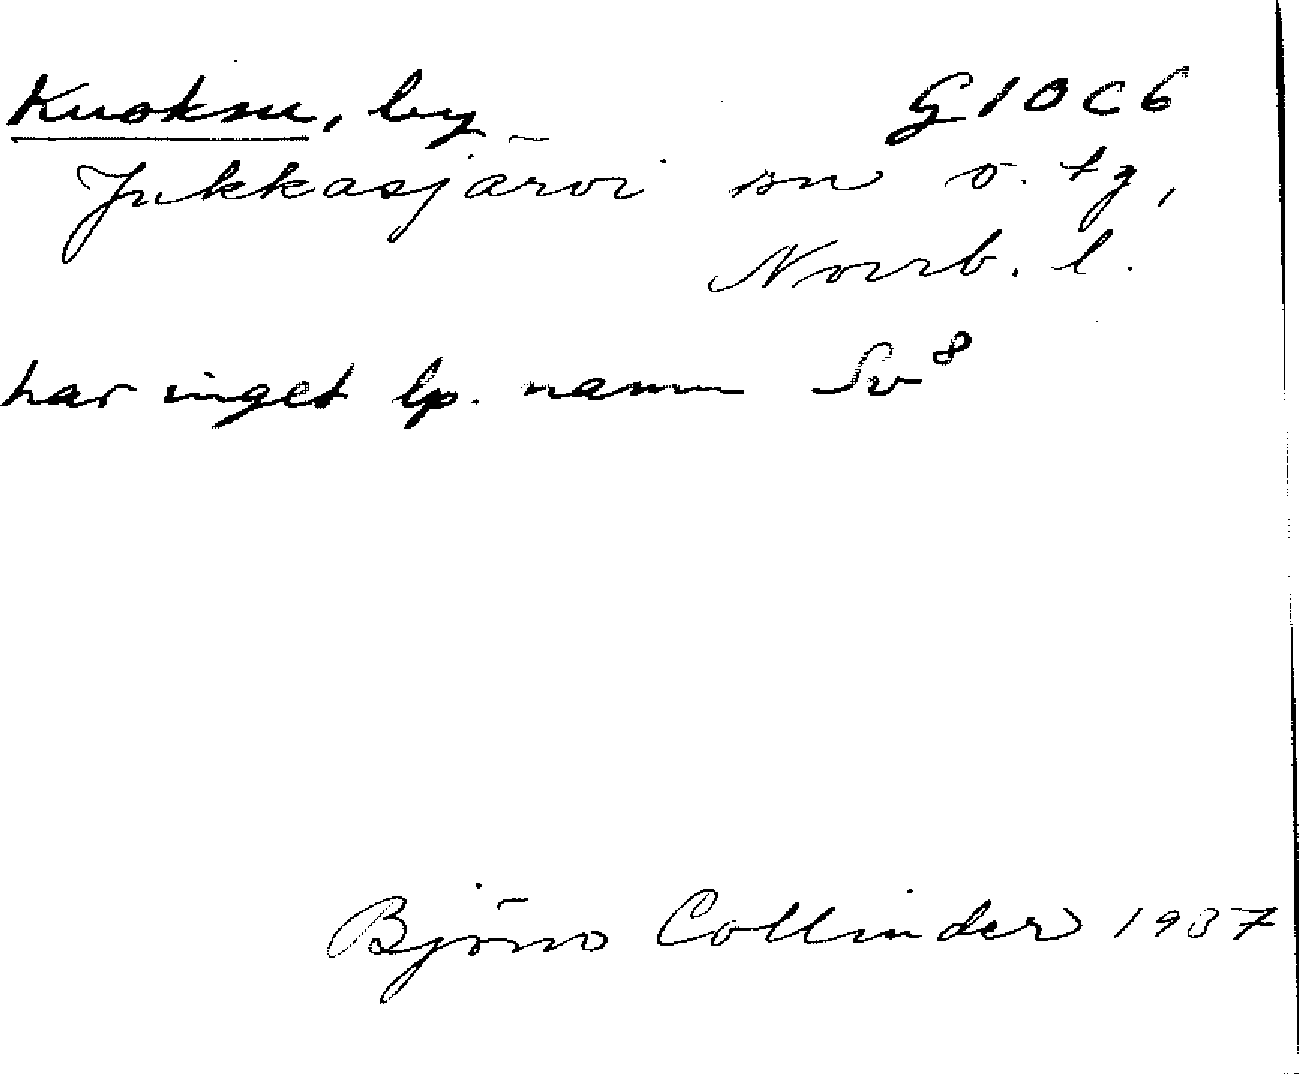 Kuoksu, by G10C6
Jukkasjärvi sn o. tg,
Norrb. l.
har inget lp. namn Sv⁸
Björn Collinder 1937